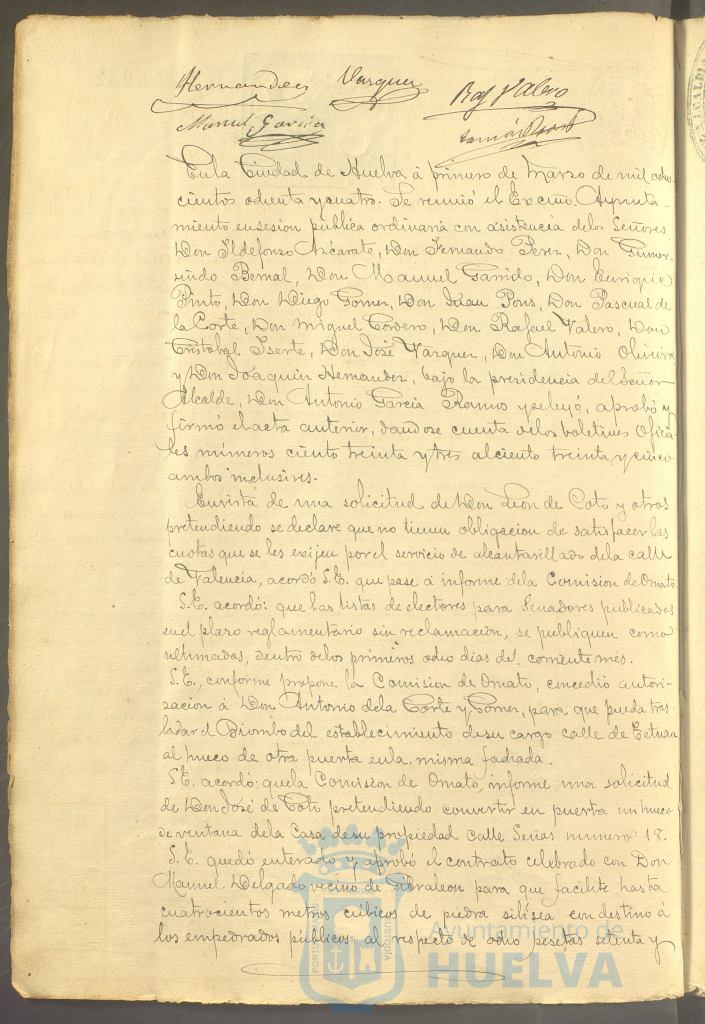 Hernandez Vazquez Raf Valero
Manuel Garcia
En la Ciudad de Huelva á primero de Marzo de mil ocho-
cientos ochenta y cuatro. Se reunió el Excmo. Ayunta-
miento en sesion pública ordinaria con asistencia de los Señores
Don Ildefonso Azcarate, Don Fernando Perez, Don Gumer-
sindo Bernal, Don Manuel Garrido, Don Enrique
Pinto, Don Diego Gomez, Don Juan Pons, Don Pascual de
la Corte, Don Miguel Cordero, Don Rafael Valero, Don
Cristobal Iserte, Don José Vazquez, Don Antonio Oliveira
y Don Joaquin Hernandez, bajo la presidencia del Señor
Alcalde, Don Antonio Garcia Ramos y se leyó, aprobó y
firmó el acta anterior, dandose cuenta de los boletines Oficia-
les números ciento treinta y tres al ciento treinta y cinco
ambos inclusives.
En vista de una solicitud de Don Leon de Coto y otros
pretendiendo se declare que no tienen obligacion de satisfacer las
cuotas que se les exijen por el servicio de alcantarillado de la calle
de Valencia, acordó S.E. que pase á informe de la Comision de Ornato.
S.E. acordó: que las listas de electores para Senadores publicadas
en el plazo reglamentario sin reclamación, se publiquen como
ultimadas, dentro de los primeros ocho dias del corriente mes.
S.E., conforme propone la Comision de Ornato, concedió autori-
zacion á Don Antonio de la Corte y Gomez, para que pueda tras-
ladar el Biombo del establecimiento de su cargo calle de Tetuan
al hueco de otra puerta en la misma fachada.
S.E. acordó: que la Comision de Ornato, informe una solicitud
de Don José de Coto pretendiendo convertir en puerta un hueco
de ventana de la Casa de su propiedad calle Señas numero 18.
S.E. quedó enterado y aprobó el contrato celebrado con Don
Manuel Delgado vecino de Gibraleon para que facilite hasta
cuatrocientos metros cúbicos de piedra silísea con destino á
los empedrados públicos al respecto de ocho pesetas setenta y
Ayuntamiento de
HUELVA